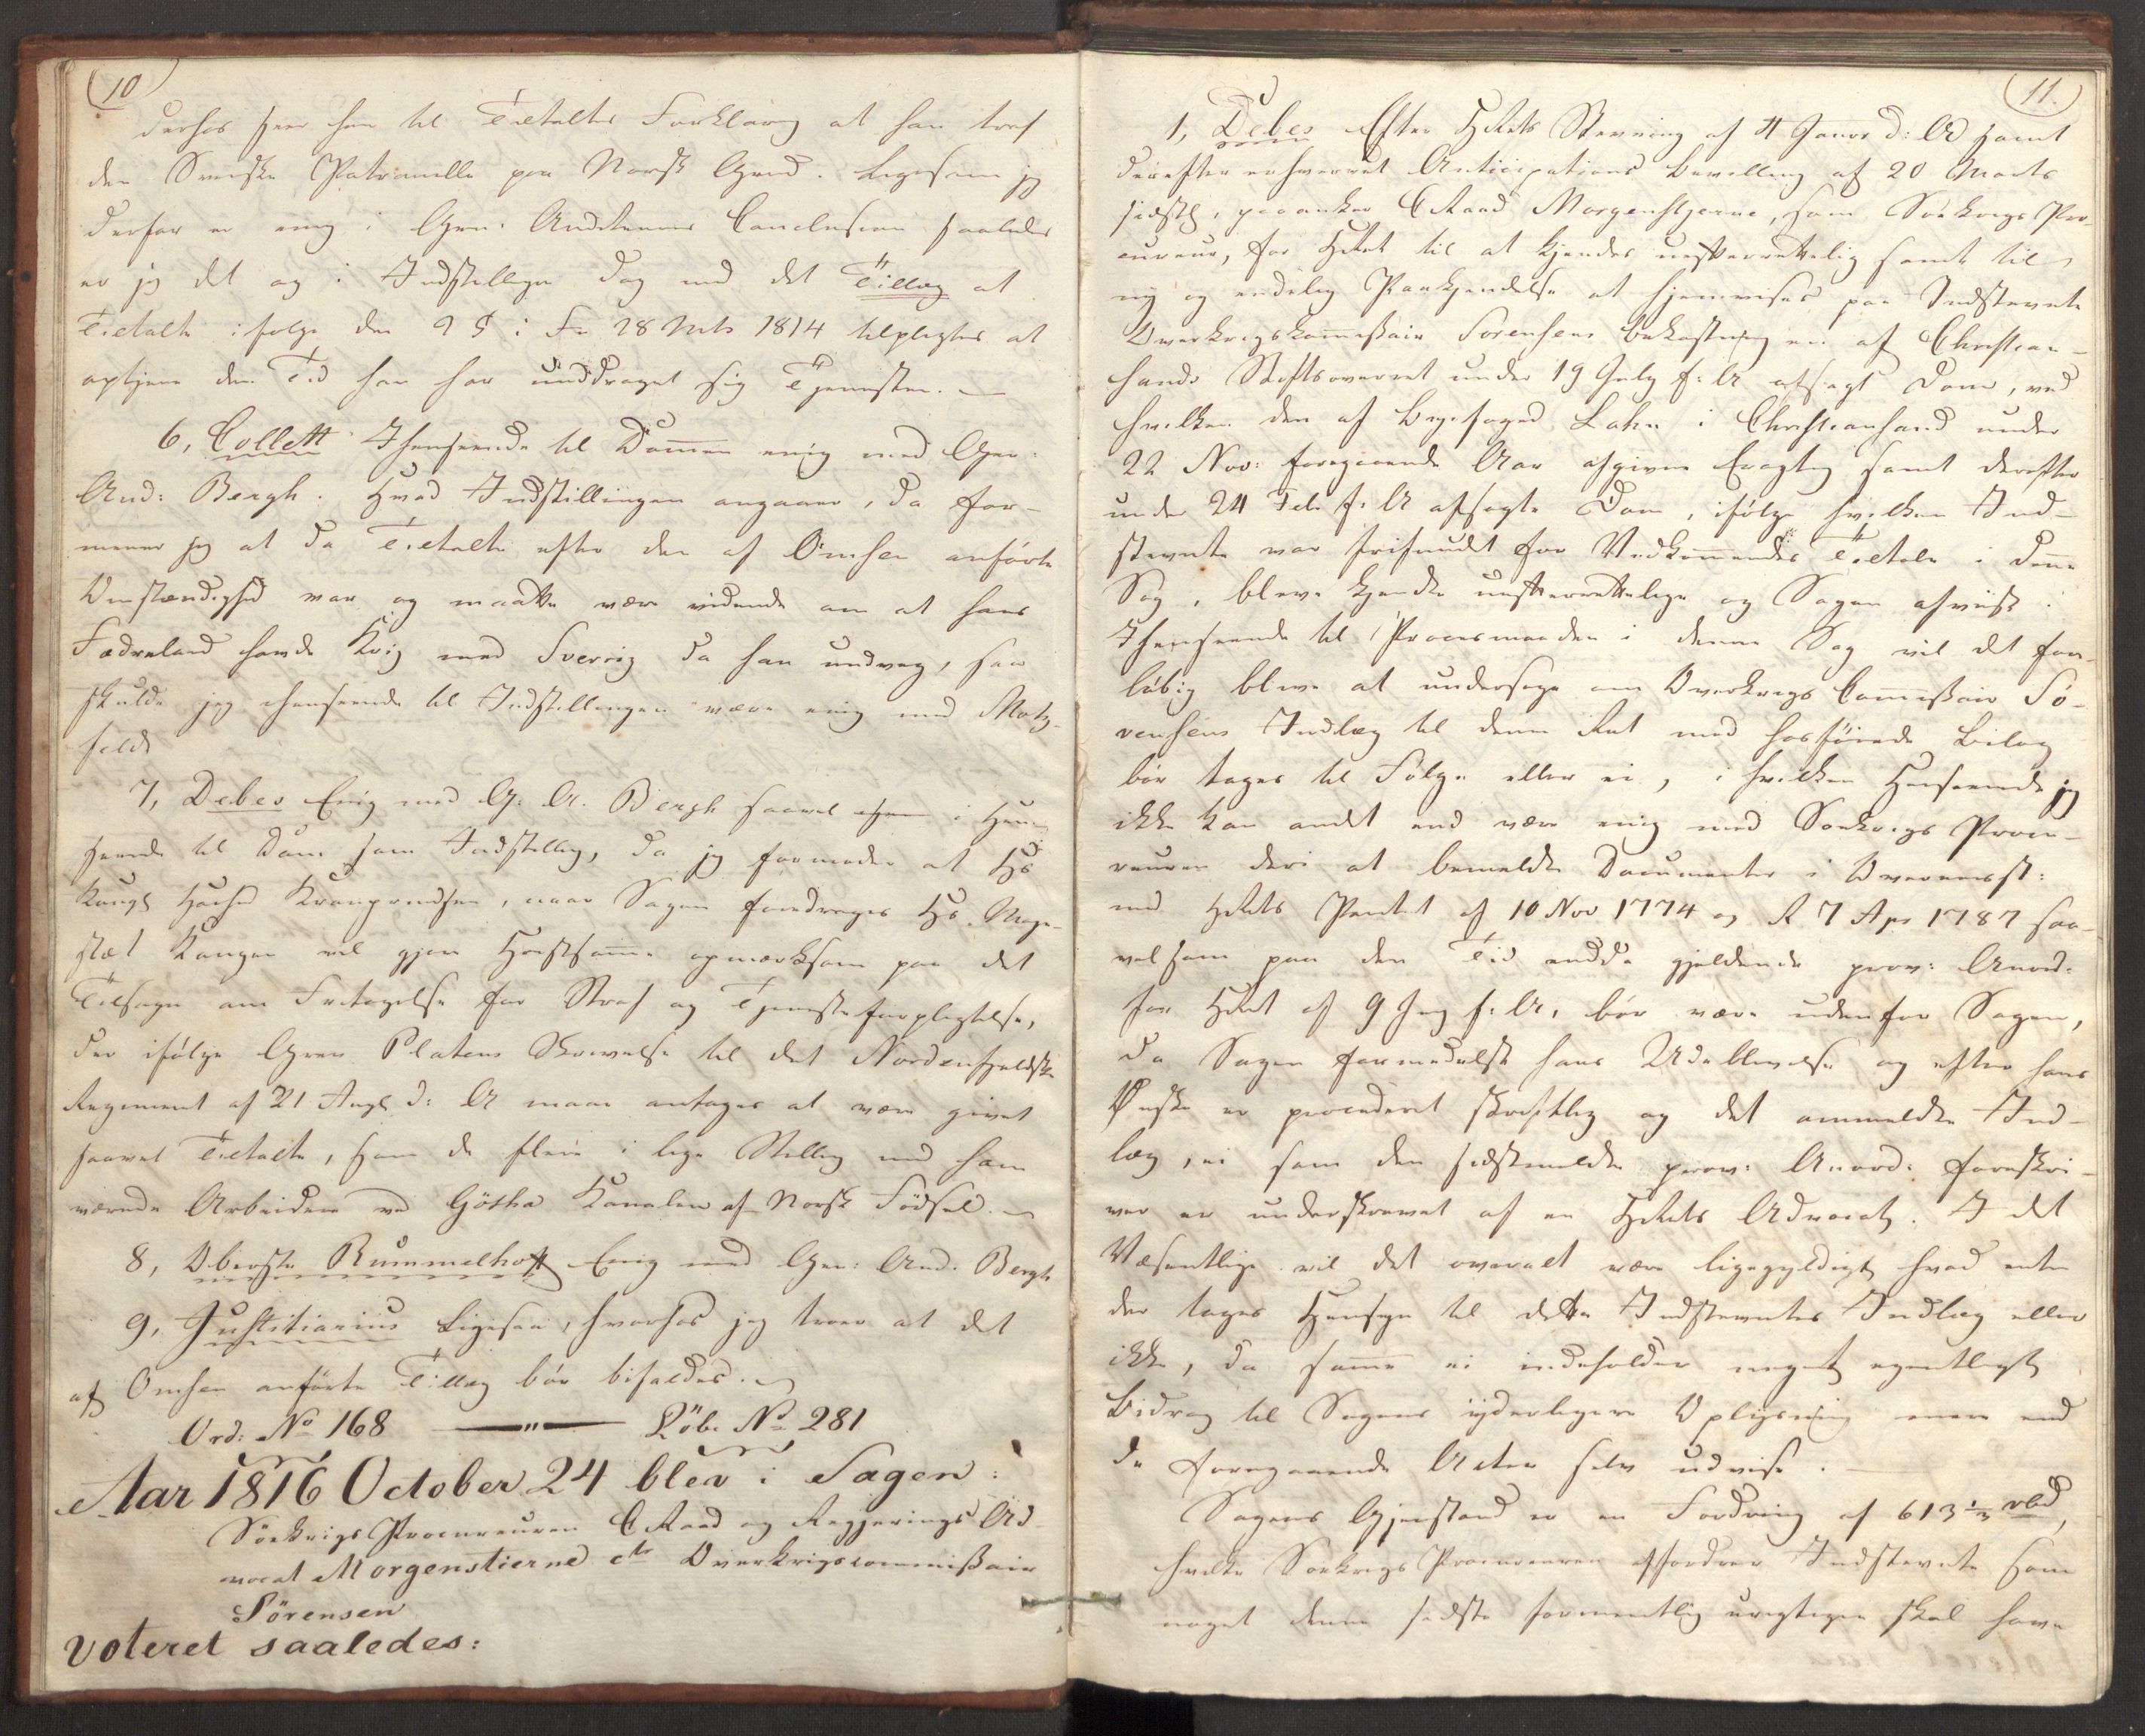 (10)
derhos seer hen til Tiltaltes Forklaring at han traf
den Svenske Patrouille paa Norsk Grund. Ligesom jeg
derfor er enig i Gen: Auditeurens Conclusion saaledes
er jeg det og i Indstillingen dog med det Tillæg at
Tiltalte ifølge den 9 § i Fr 28 Mts 1814 tilpligtes at
optjene den Tid han har unddraget sig Tjenesten. —
6, Collett Ihenseende til Dommen enig med Gen:
Aud: Bergh. Hvad Indstillingen angaaer, da for-
mener jeg at da Tiltalte efter den af Omsen anførte
Omstændighed var og maatte være vidende om at hans
Fædreland havde Krig med Sverrig da han undveg, saa
skulde jeg ihenseende til Indstillingen være enig med Motz-
feldt
7, Debes Enig med G. A. Bergh saavel i Hen-
seende til Dom som Indstilling, da jeg formoder at Hs
Kongl Høihed Kronprindsen, naar Sagen foredrages Hs. Maje-
stæt Kongen vil gjøre Høistsamme opmærksom paa det
Tilsagn om Fritagelse for Straf og Tjenesteforpligtelse,
der ifølge Grev Platens Skrivelse til det Nordenfjeldske
Regiment af 21 Augt d: A maae antages at være givet
saavel Tiltalte, som de flere i lige Stilling med ham
værende Arbeidere ved Götha Kanalen af Norsk Fødsel. —
8, Oberste Rummelhoff Enig med Gen: Aud. Bergh
9, Justitiarius Ligesaa, hvorhos jeg troer at det
af Omsen anførte Tillæg bør bifaldes. —
Ord: No 168 —"— Løb. No 281
Aar 1816 October 24 blev i Sagen:
Søekrigs Procureuren E Raad og Regjerings Ad
vocat Morgenstierne ctr Overkrigscommissair
Sörensen
voteret saaledes:
(11.)
1, Debes Efter HRets Stevning af 4 Januar d: A samt
derefter erhvervet Anticipations Bevilling af 20 Marts
sidstl, paaanker E Raad Morgenstjerne, som Søekrigs Pro-
cureur, for HRet til at kjendes uefterrettelig samt til
ny og endelig Paakjendelse at hjemvises paa Indstevnte
Overkrigskommissair Sørensens Bekostning en af Christian-
sands Stiftsoverret under 19 July f: A afsagt Dom, ved
hvilken den af Byefoged Lahn i Christiansand under
22 Nov: foregaaende Aar afgivne Eragtg samt derefter
under 24 Feb f: A afsagte Dom, ifølge hvilken Ind-
stevnte var frifundet for Vedkommendes Tiltale i denne
Sag, bleve kjendte uefterrettelige og Sagen afviist.
Ihenseende til Procesmaaden i denne Sag vil det for-
løbig blive at undersøge om Overkrigs Commissair Sö-
rensens Indlæg til denne Ret med hosføiede Bilag
bør tages til Følge eller ei, i hvilken Henseende jeg
ikke kan andet end være enig med Søekrigs Procu-
reuren deri at bemeldte Documenter i Overeensst:
med HRets Patent af 10 Nov 1774 og R 7 Apr 1787 saa-
velsom paa den Tid endda gjeldende prov: Anord:
for HRet af 9 f: A, bør være udenfor Sagen,
da Sagen formedelst hans Udeblivelse og efter hans
Ønske er procederet skriftlig og det ommeldte Ind-
læg, ei som den sidstmeldte prov: Anord: foreskri-
ver er underskrevet af en HRets Advocat. I det
Væsentlige vil det overalt være ligegyldigt hvad enten
der tages Hensyn til dette Indstevntes Indlæg eller
ikke, da samme ei indeholder noget egentligt
Bidrag til Sagens yderligere Oplysning mere end
de foregaaende Acter selv udvise. —
Sagens Gjenstand er en Fordring af 613 rbd,
hvilke Søekrigs Procureuren affordrer Indstevnte som
noget denne sidste formentlig urigtigen skal have